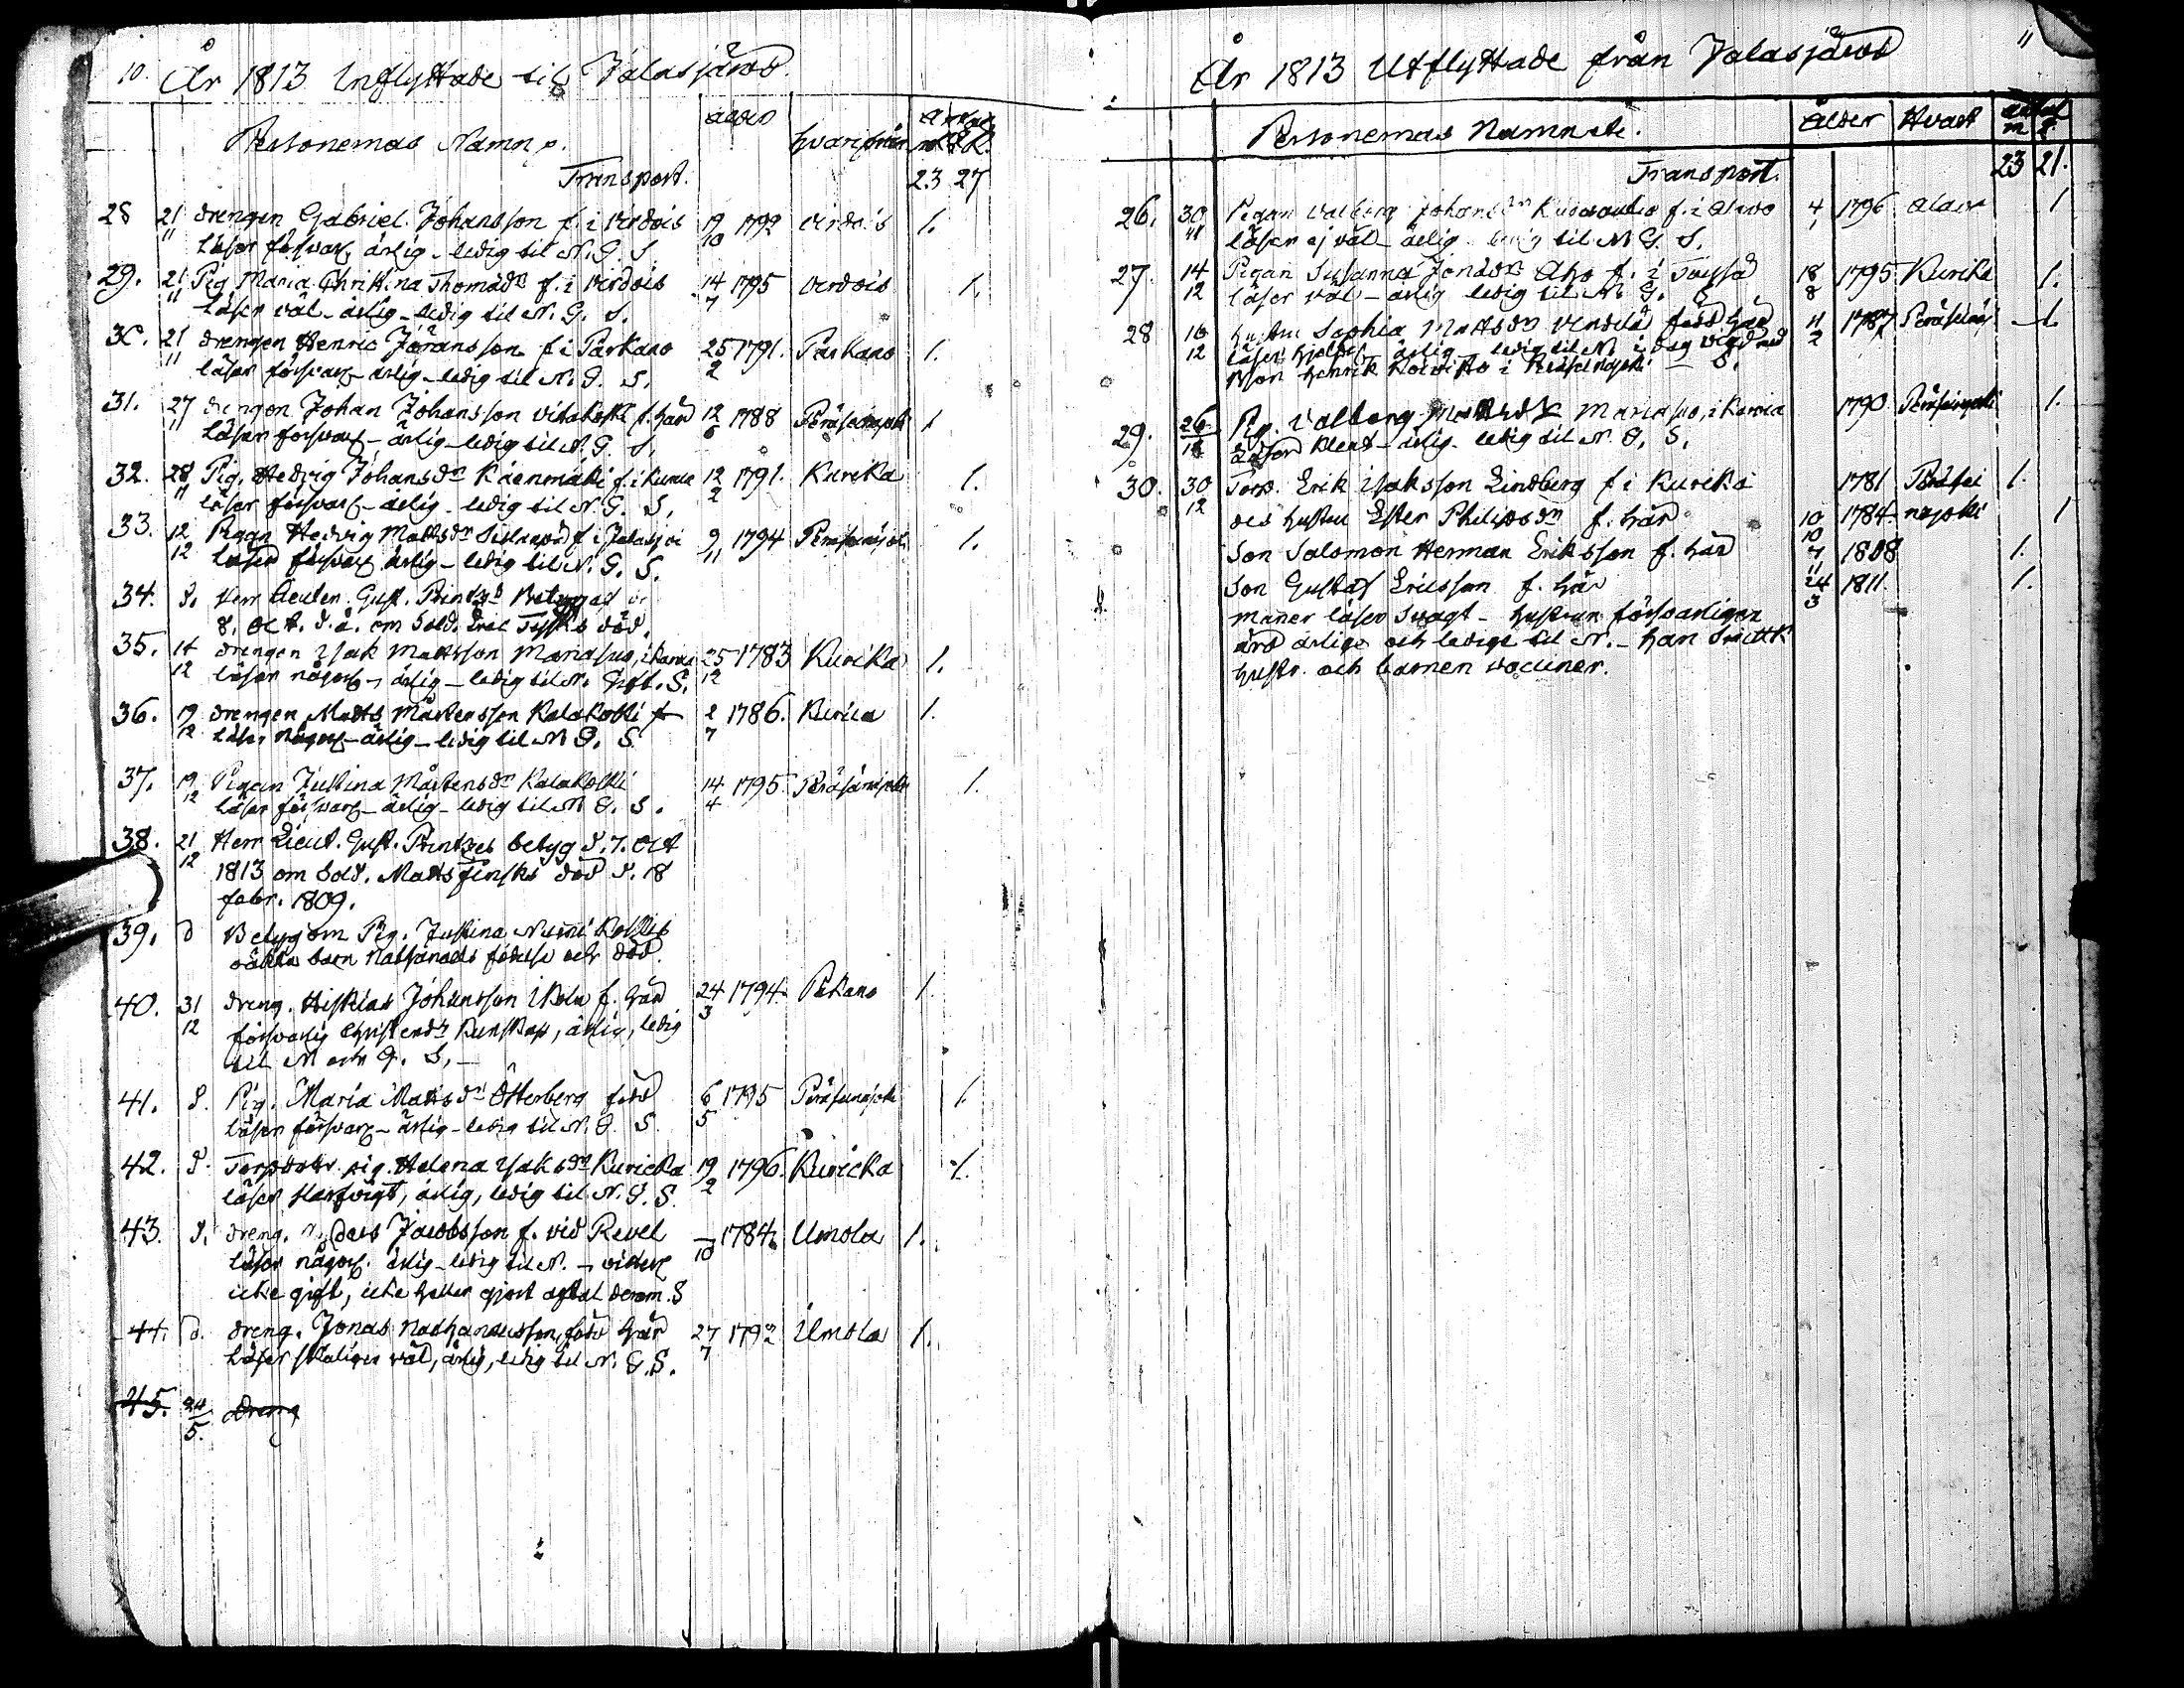 10. År 1813 Inflyttade til Jalasjärvi
Personernas Namn p. Ålder hvarifrån
Transport. 23 27
28 21/11 drengen Gabriel Johansson f. i Virdois 19/10 1792 Virdois 1.
läser försvarl. ärlig - ledig til N. G. S.
29. 21/11 Pig Maria Christina Thomædr f. i Virdois 14/7 1795 Virdois 1.
läser väl - ärlig - ledig til N. G. S.
30. 21/11 drengen Henric Göransson f. i Parkano 25/2 1791. Parkano 1.
läser försvarl. - ärlig - ledig til N. G. S.
31. 27/11 drengen Johan Johansson f. här 12/6 1788 Peräseinejoki 1
läser försvarl. - ärlig - ledig til N. G. S.
32. 28/11 Pig. Hedvig Johansdr Käenmäki f. i Kurica 12/2 1791. Kurika 1.
läser försvarl. - ärlig - ledig til N. G. S.
33. 12/12 Pigan Hedvig Mattsdr f. i 9/11 1794 Peräseinäjoki 1.
läser försvarl. ärlig - ledig til N. G. S.
34. d. Herr Gust. Printz's Betyg af
8. Oct. d. å. om Sold. Eric död.
35. 14/12 drengen Isak Mattsson 25/12 1783 Kurika 1.
läser någorl. - ärlig - ledig til N. Gift. S.
36. 19/12 drengen Matts Mårtensson Kalakoski f 2/7 1786. Kurica 1.
läser någorl. - ärlig - ledig til N G. S.
37. 19/12 Pigan Justina Mårtensdr Kalakoski 14/4 1795. Peräseinäjoki 1.
läser försvarl. - ärlig - ledig til N G. S.
38. 21/12 Herr Lieut. Gust. Printzes betyg d. 7. Oct
1813 om Sold. Matts Finskis död d. 18
febr. 1809.
39. d Betyg om Pig. Justina
oäkta barn Nathanaels födelse och död.
40. 31/12 dreng. Hiskias Johansson f. här 24/3 1794 Parkano 1.
försvarlig Christend. Kunskap, ärlig, ledig
til N och G. S. -
41. d. Pig. Maria Mattsdr Österberg född 6/5 1795 Peräseinäjoki 1.
läser försvarl. - ärlig - ledig til N. G. S.
42. d. pig. Helena Isaksdr Kuricka 19/2 1796. Kuricka 1.
läser , ärlig, ledig til N. G. S.
43. d. dreng. Jacobsson f. vid Revel -/10 1784. Umola 1.
läser någorl. ärlig - ledig til N. -
icke gift, icke heller gjort aftal derom. S
44. d. dreng. Jonas Nathanaelsson född här 27/7 1792 Ilmola 1.
läser väl, ärlig, ledig til N. G. S.
45. 24/5. dreng
År 1813 Utflyttade från Jalasjärvi 11
Personernas Namn etc. Ålder Hvart Antal m q
Transport. 23 21.
26. 30/11 Pigan Valborg Johansdr f. i Alavo 4/1 1796 Alavo 1
läser ej väl - ärlig ledig til N G. S.
27. 14/12 Pigan Susanna Jonædr Aho f. i Töysä 18/8 1795 Kurika 1.
läser väl - ärlig ledig til N. G. S
28 16/12 Sophia Mattsdr född här 11/2 1787 Peräseinäj 1.
läser ärlig ledig til N. i dag vigd med
Henrik i S.
29. 26/12 Pig. Valborg Mattsdr 1790 Peräseinejoki 1.
läser klent - ärlig - ledig til N. G. S.
30. 30/12 Torp. Erik Isaksson Lindberg f i Kurika 1781 Peräsei 1.
des hustru Ester Philipsdr f. här 10/10 1784 näjoki 1
Son Salomon Herman Eriksson f. här 7/11 1808 1.
Son Gustaf Ericsson f. här 24/3 1811. 1.
Manen läser svagt - hustrun försvarligen
äro ärlige och ledige til N. - han
hustr. och barnen vacciner.